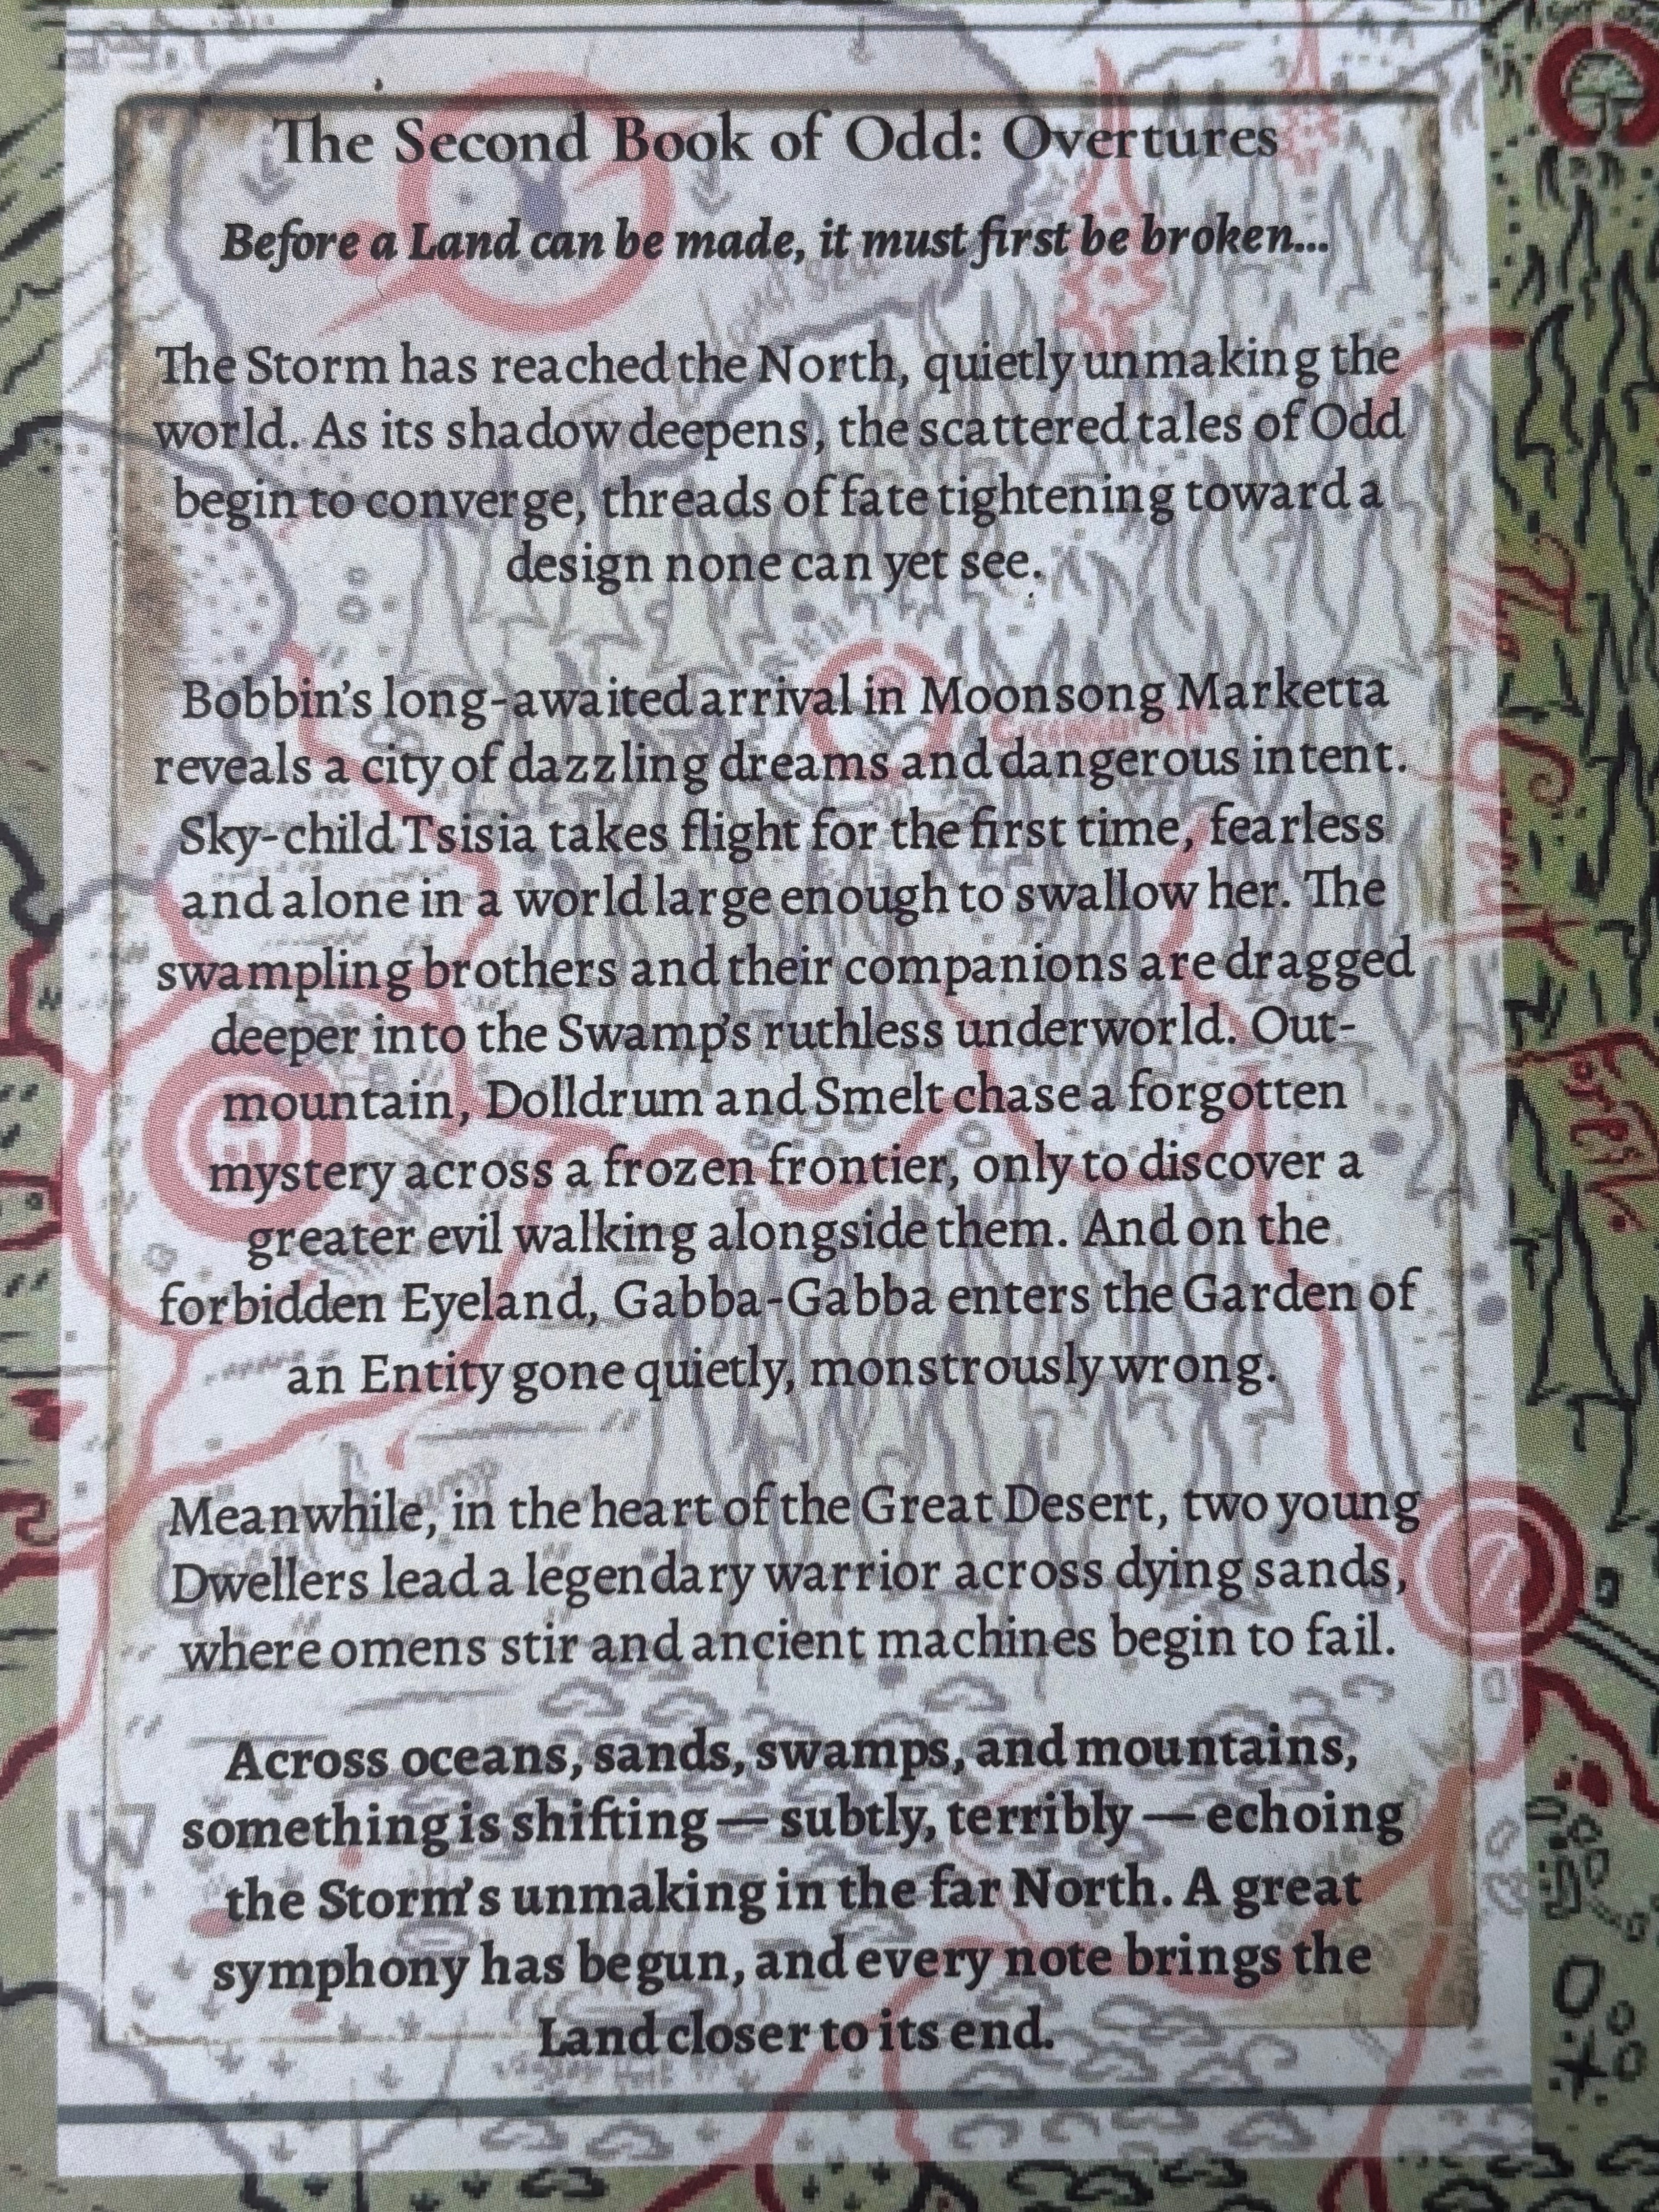 The Second Book of Odd: Overtures
Before a Land can be made, it must first be broken...
The Storm has reached the North, quietly unmaking the
world. As its shadow deepens, the scattered tales of Odd
begin to converge, threads of fate tightening toward a
design none can yet see.
Bobbin's long-awaited arrival in Moonsong Marketta
reveals a city of dazzling dreams and dangerous intent.
Sky-child Tsisia takes flight for the first time, fearless
and alone in a world large enough to swallow her. The
swampling brothers and their companions are dragged
deeper into the Swamp's ruthless underworld. Out-
mountain, Dolldrum and Smelt chase a forgotten
mystery across a frozen frontier, only to discover a
greater evil walking alongside them. And on the
forbidden Eyeland, Gabba-Gabba enters the Garden of
an Entity gone quietly, monstrously wrong.
Meanwhile, in the heart of the Great Desert, two young
Dwellers lead a legendary warrior across dying sands,
where omens stir and ancient machines begin to fail.
Across oceans, sands, swamps, and mountains,
something is shifting — subtly, terribly — echoing
the Storm's unmaking in the far North. A great
symphony has begun, and every note brings the
Land closer to its end.
The Great Forest.